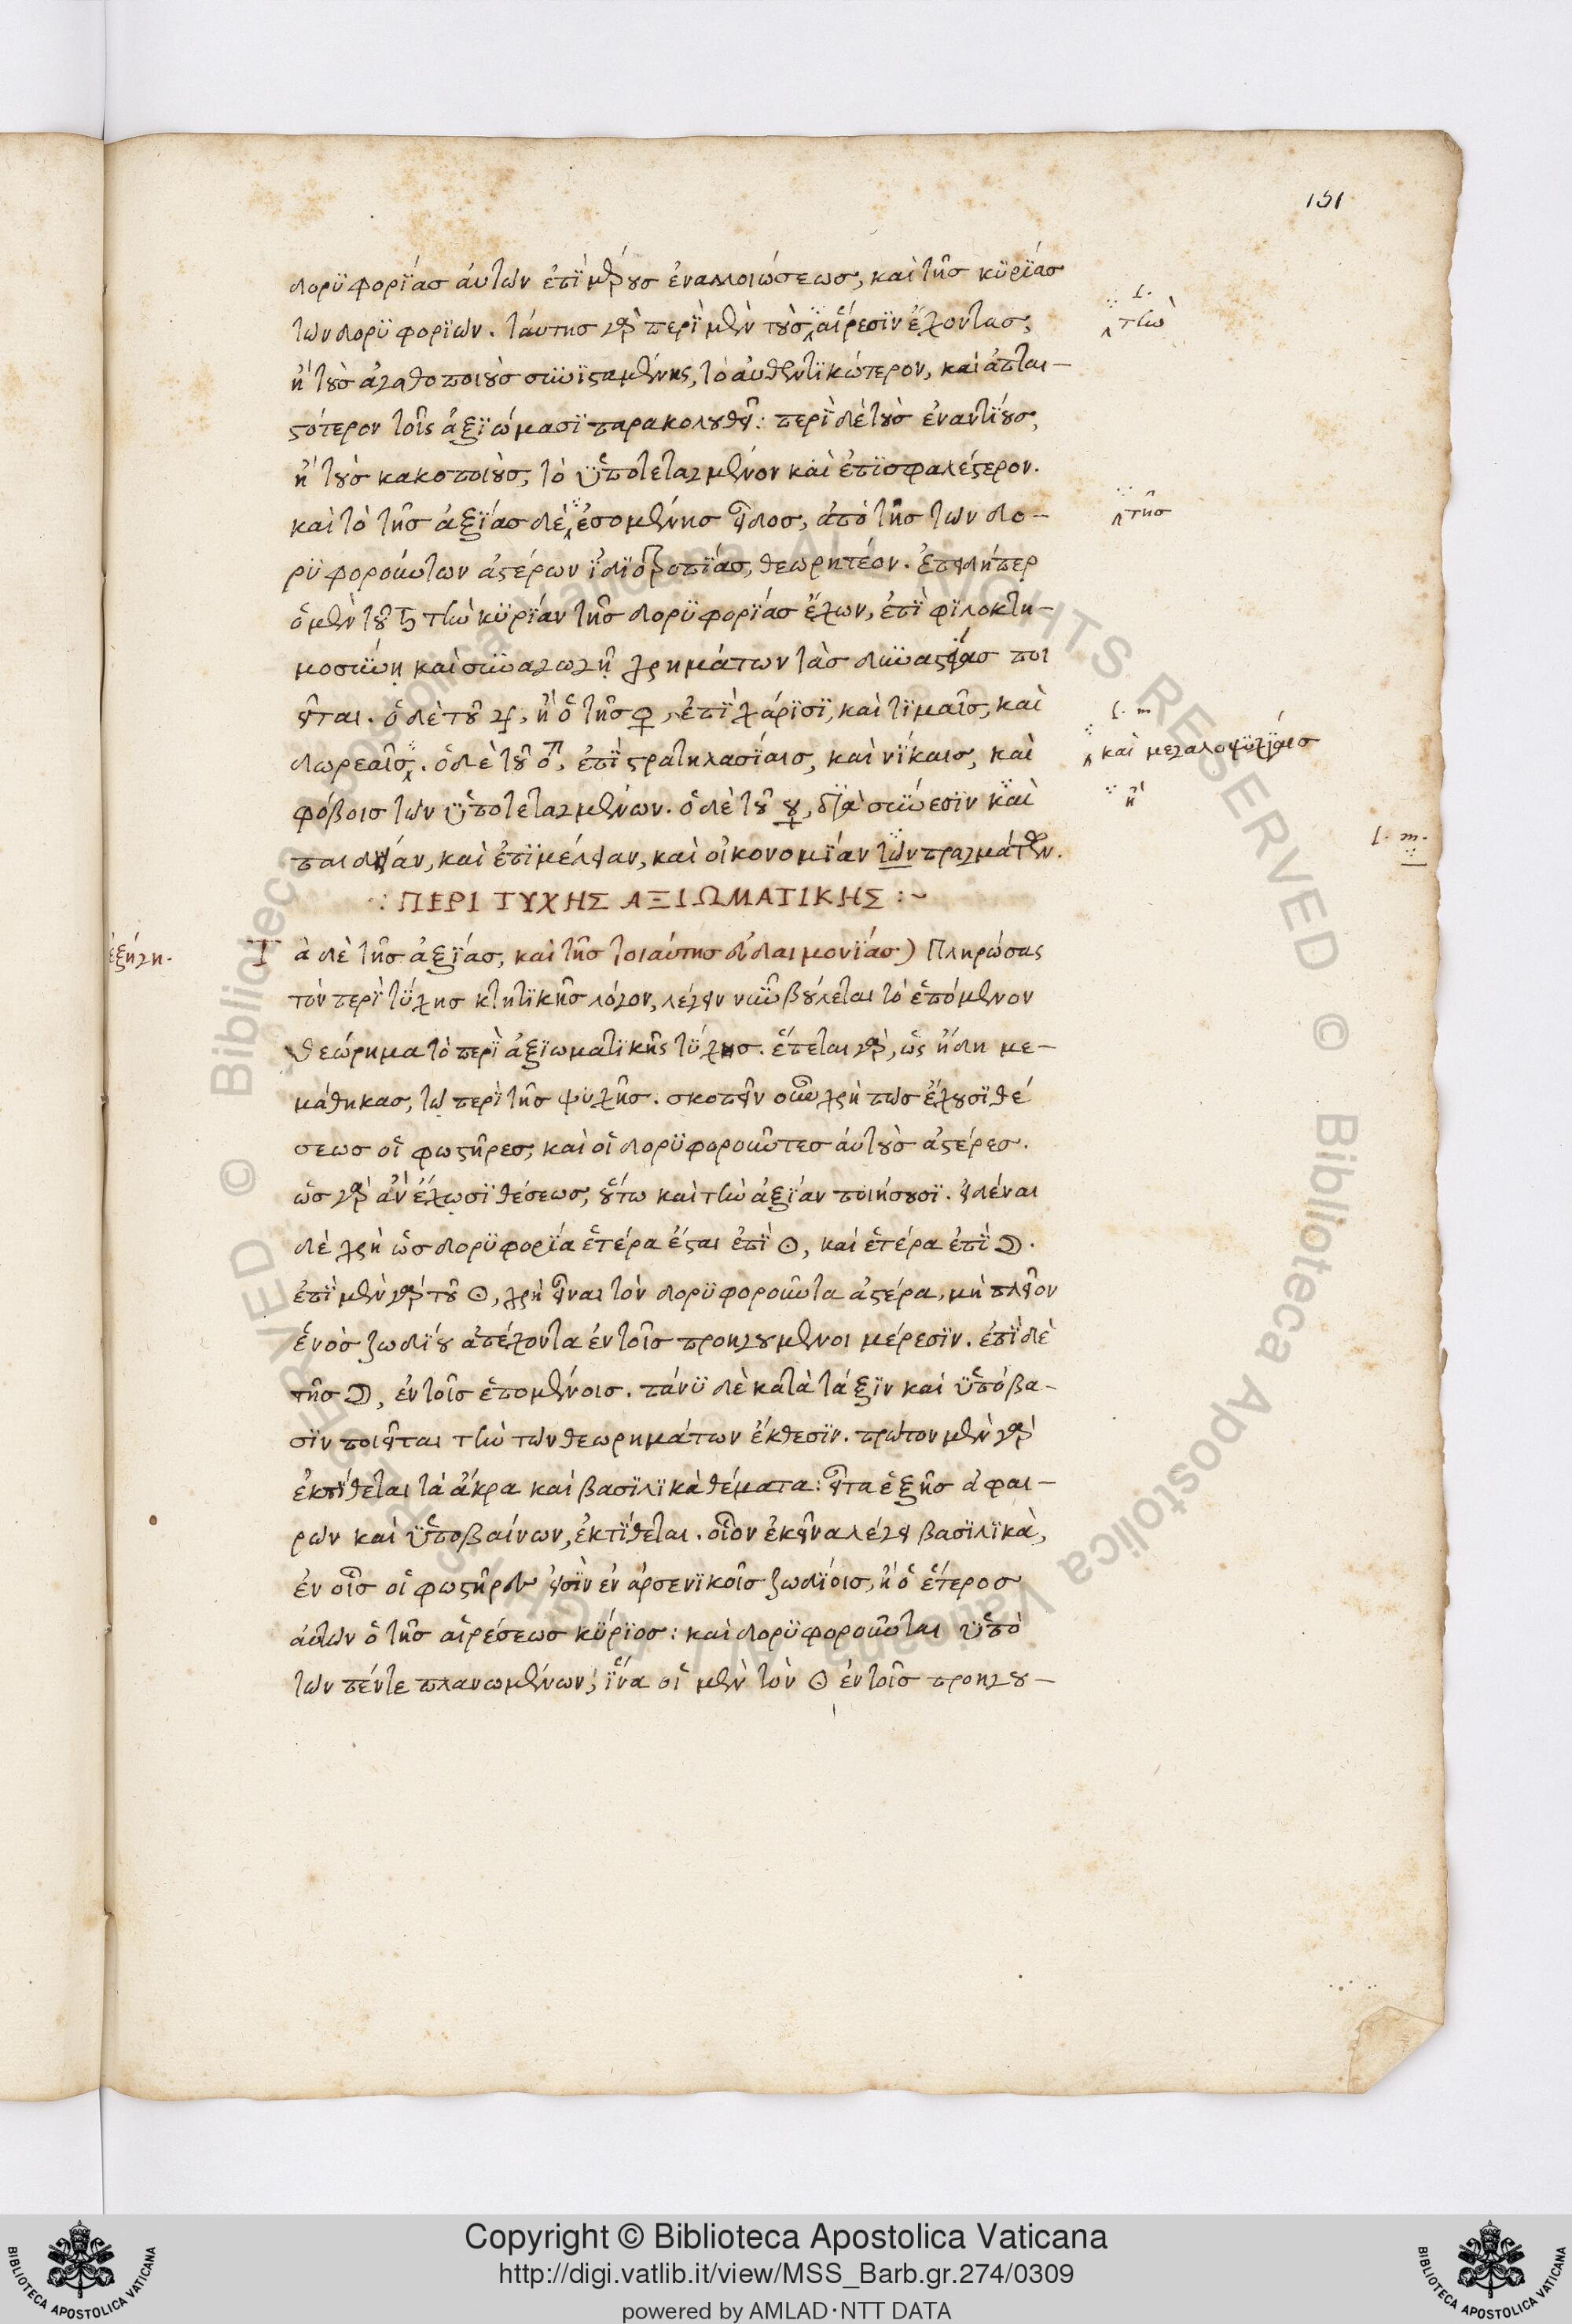 151
δορϋφορΐας ἀυτῶν ἐπῒ μέρους ἐναλλοιώσεως, καὶ τῆς κϋρΐας
τῶν δορϋφορϊῶν. ταύτης γὰρ περῒ μὲν τοὺς αἵρεσϊν ἔχοντας,
ἢ τοὺς ἀγαθοποιοὺς συνϊσταμένης, τὸ αὐθεντϊκώτερον, καὶ ἀπται-
στότερον τοῖς ἀξϊώμασϊ παρακολουθεῖ: περῒ δὲ τοὺς ἐναντΐους,
ἢ τοὺς κακοποιοὺς, τὸ ὑποτεταγμένον καὶ ἐπϊσφαλέστερον.
καὶ τὸ τῆς ἀξΐας δὲ ἐσομένης εἶδος, ἀπὸ τῆς τῶν δο-
ρϋφορούντων ἀστέρων ἰδϊοτροπΐας, θεωρητέον. ἐπειδήπερ
ὁ μὲν τοῦ ♄ τὴν κϋρΐαν τῆς δορϋφορΐας ἔχων, ἐπῒ φϊλοκτη-
μοσύνῃ καὶ συναγωγῇ χρημάτων τὰς δυναστείας ποι
εῖται. ὁ δὲ τοῦ ♃, ἢ ὁ τῆς ♀, ἐπῒ χάρϊσϊ, καὶ τϊμαῖς, καὶ
δωρεαῖς. ὁ δὲ τοῦ ♂, ἐπῒ στρατηλασΐαις, καὶ νΐκαις, καὶ
φόβοις τῶν ὑποτεταγμένων. ὁ δὲ τοῦ ☿, δϊὰ σύνεσϊν καὶ
παιδείαν, καὶ ἐπϊμέλειαν, καὶ οἰκονομΐαν τῶν πραγμάτων.
∴ ΠΕΡΙ ΤΥΧΗΣ ΑΞΙΩΜΑΤΙΚΗΣ :~
Τὰ δὲ τῆς ἀξΐας, καὶ τῆς τοιαύτης εὐδαιμονΐας) Πληρώσας
τὸν περῒ τύχης κτητϊκῆς λόγον, λέγειν νῦν βούλεται τὸ ἑπόμενον
θεώρημα τὸ περῒ ἀξϊωματϊκῆς τύχης. ἕπεται γὰρ, ὡς ἤδη με-
μάθηκας, τῷ περῒ τῆς ψϋχῆς. σκοπεῖν οὖν χρὴ πῶς ἔχουσϊ θέ
σεως οἱ φωστῆρες, καὶ οἱ δορϋφοροῦντες ἀυτοὺς ἀστέρες.
ὡς γὰρ ἂν ἔχωσϊ θέσεως, οὕτω καὶ τὴν ἀξΐαν ποιήσουσϊ. εἰδέναι
δὲ χρὴ ὡς δορϋφορΐα ἑτέρα ἔσται ἐπῒ ☉, καὶ ἑτέρα ἐπῒ ☽.
ἐπῒ μὲν γὰρ τοῦ ☉, χρὴ εἶναι τὸν δορϋφοροῦντα ἀστέρα, μὴ πλεῖον
ἑνὸς ζωδΐου ἀπέχοντα ἐν τοῖς προηγουμένοι μέρεσϊν. ἐπῒ δὲ
τῆς ☽, ἐν τοῖς ἑπομένοις. πάνϋ δὲ κατὰ τάξϊν καὶ ὑπόβα-
σϊν ποιεῖται τὴν τῶν θεωρημάτων ἔκθεσϊν. πρῶτον μὲν γὰρ
ἐκτΐθεται τὰ ἄκρα καὶ βασϊλϊκὰ θέματα: εἶτα ἑξῆς ἀφαι-
ρῶν καὶ ὑποβαίνων, ἐκτΐθεται. οἷον ἐκεῖνα λέγει βασϊλϊκὰ,
ἐν οἷς οἱ φωστῆρες εἰσὶν ἐν ἀρσενϊκοῖς ζωδΐοις, ἢ ὁ ἕτερος
ἀυτῶν ὁ τῆς αἱρέσεως κύρϊος: καὶ δορϋφοροῦνται ὑπὸ
τῶν πέντε πλανωμένων, ἵνα οἱ μὲν τὸν ☉ ἐν τοῖς προηγου-
ἐξήγη.
τὴν
τῆς
καὶ μεγαλοψϋχΐαις
ἢ
Copyright © Biblioteca Apostolica Vaticana
http://digi.vatlib.it/view/MSS_Barb.gr.274/0309
powered by AMLAD·NTT DATA
BIBLIOTECA APOSTOLICA VATICANA
BIBLIOTECA APOSTOLICA VATICANA
© Biblioteca Apostolica Vaticana ALL RIGHTS RESERVED © Biblioteca Apostolica Vaticana ALL RIGHTS RESERVED